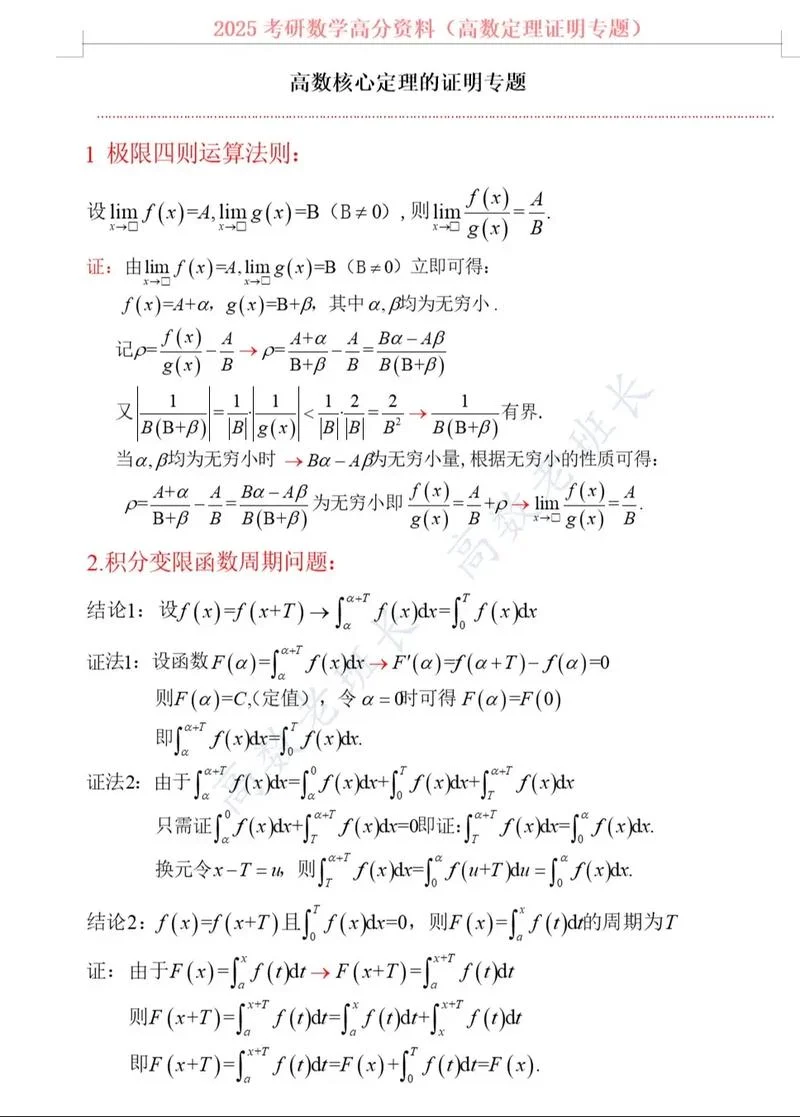 2025 考研数学高分资料（高数定理证明专题）
高数核心定理的证明专题
1 极限四则运算法则：
设 lim_{x→□} f(x)=A, lim_{x→□} g(x)=B（B≠0）, 则 lim_{x→□} f(x)/g(x) = A/B.
证：由 lim_{x→□} f(x)=A, lim_{x→□} g(x)=B（B≠0）立即可得：
f(x)=A+α，g(x)=B+β，其中α,β均为无穷小.
记ρ=f(x)/g(x) − A/B → ρ=(A+α)/(B+β) − A/B = (Bα−Aβ)/(B(B+β))
又 |1/(B(B+β))| = |1/B|·|1/g(x)| < |1/B|·|2/B| = 2/B² → 1/(B(B+β)) 有界.
当α,β均为无穷小时 → Bα−Aβ为无穷小量, 根据无穷小的性质可得：
ρ=(A+α)/(B+β) − A/B = (Bα−Aβ)/(B(B+β)) 为无穷小即 f(x)/g(x) = A/B +ρ → lim_{x→□} f(x)/g(x) = A/B.
2.积分变限函数周期问题：
结论1：设f(x)=f(x+T) → ∫_α^{α+T} f(x)dx=∫_0^T f(x)dx
证法1：设函数F(α)=∫_α^{α+T} f(x)dx → F′(α)=f(α+T)−f(α)=0
则F(α)=C,（定值），令 α=0时可得 F(α)=F(0)
即∫_α^{α+T} f(x)dx=∫_0^T f(x)dx.
证法2：由于∫_α^{α+T} f(x)dx=∫_α^0 f(x)dx+∫_0^T f(x)dx+∫_T^{α+T} f(x)dx
只需证∫_α^0 f(x)dx+∫_T^{α+T} f(x)dx=0即证:∫_T^{α+T} f(x)dx=∫_0^α f(x)dx.
换元令x−T=u，则∫_T^{α+T} f(x)dx=∫_0^α f(u+T)du=∫_0^α f(x)dx.
结论2：f(x)=f(x+T)且∫_0^T f(x)dx=0，则F(x)=∫_a^x f(t)dt的周期为T
证：由于F(x)=∫_a^x f(t)dt → F(x+T)=∫_a^{x+T} f(t)dt
则F(x+T)=∫_a^{x+T} f(t)dt=∫_a^x f(t)dt+∫_x^{x+T} f(t)dt
即F(x+T)=∫_a^{x+T} f(t)dt=F(x)+∫_0^T f(t)dt=F(x).
高数老班长
高数老班长